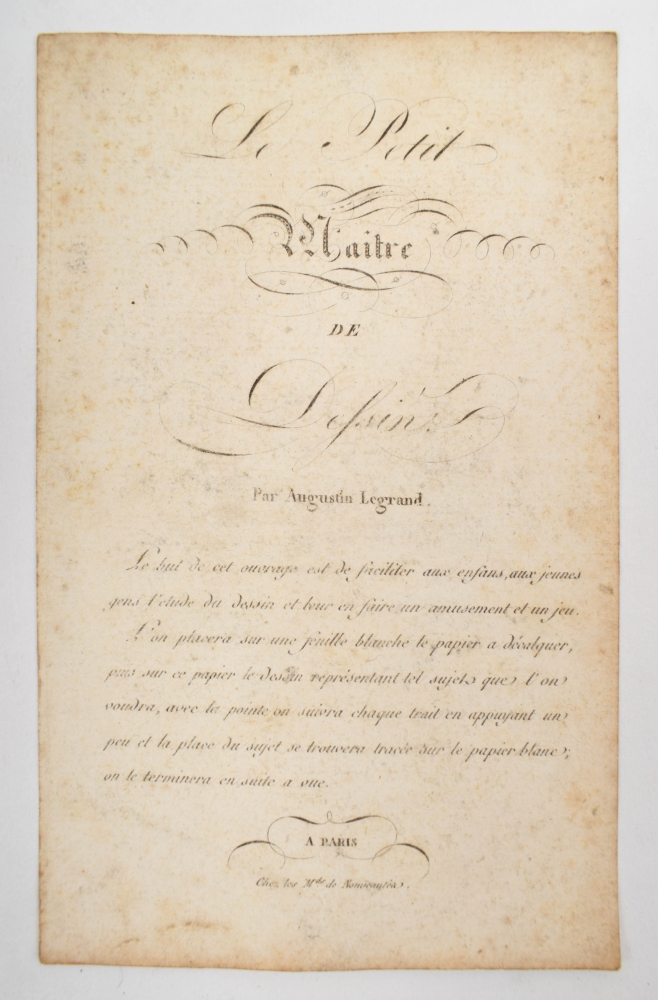 Le Petit
Maitre
DE
Dessins
Par Augustin Legrand.
Le but de cet ouvrage est de faciliter aux enfans, aux jeunes
gens l'etude du dessin et leur en faire un amusement et un jeu.
L'on placera sur une feuille blanche le papier a décalquer,
puis sur ce papier le dessin représentant tel sujet que l'on
voudra, avec la pointe on suivra chaque trait en appuyant un
peu et la place du sujet se trouvera tracée sur le papier blanc,
on le terminera en suite a vue.
A PARIS
Chez les Mds. de Nouveautés.